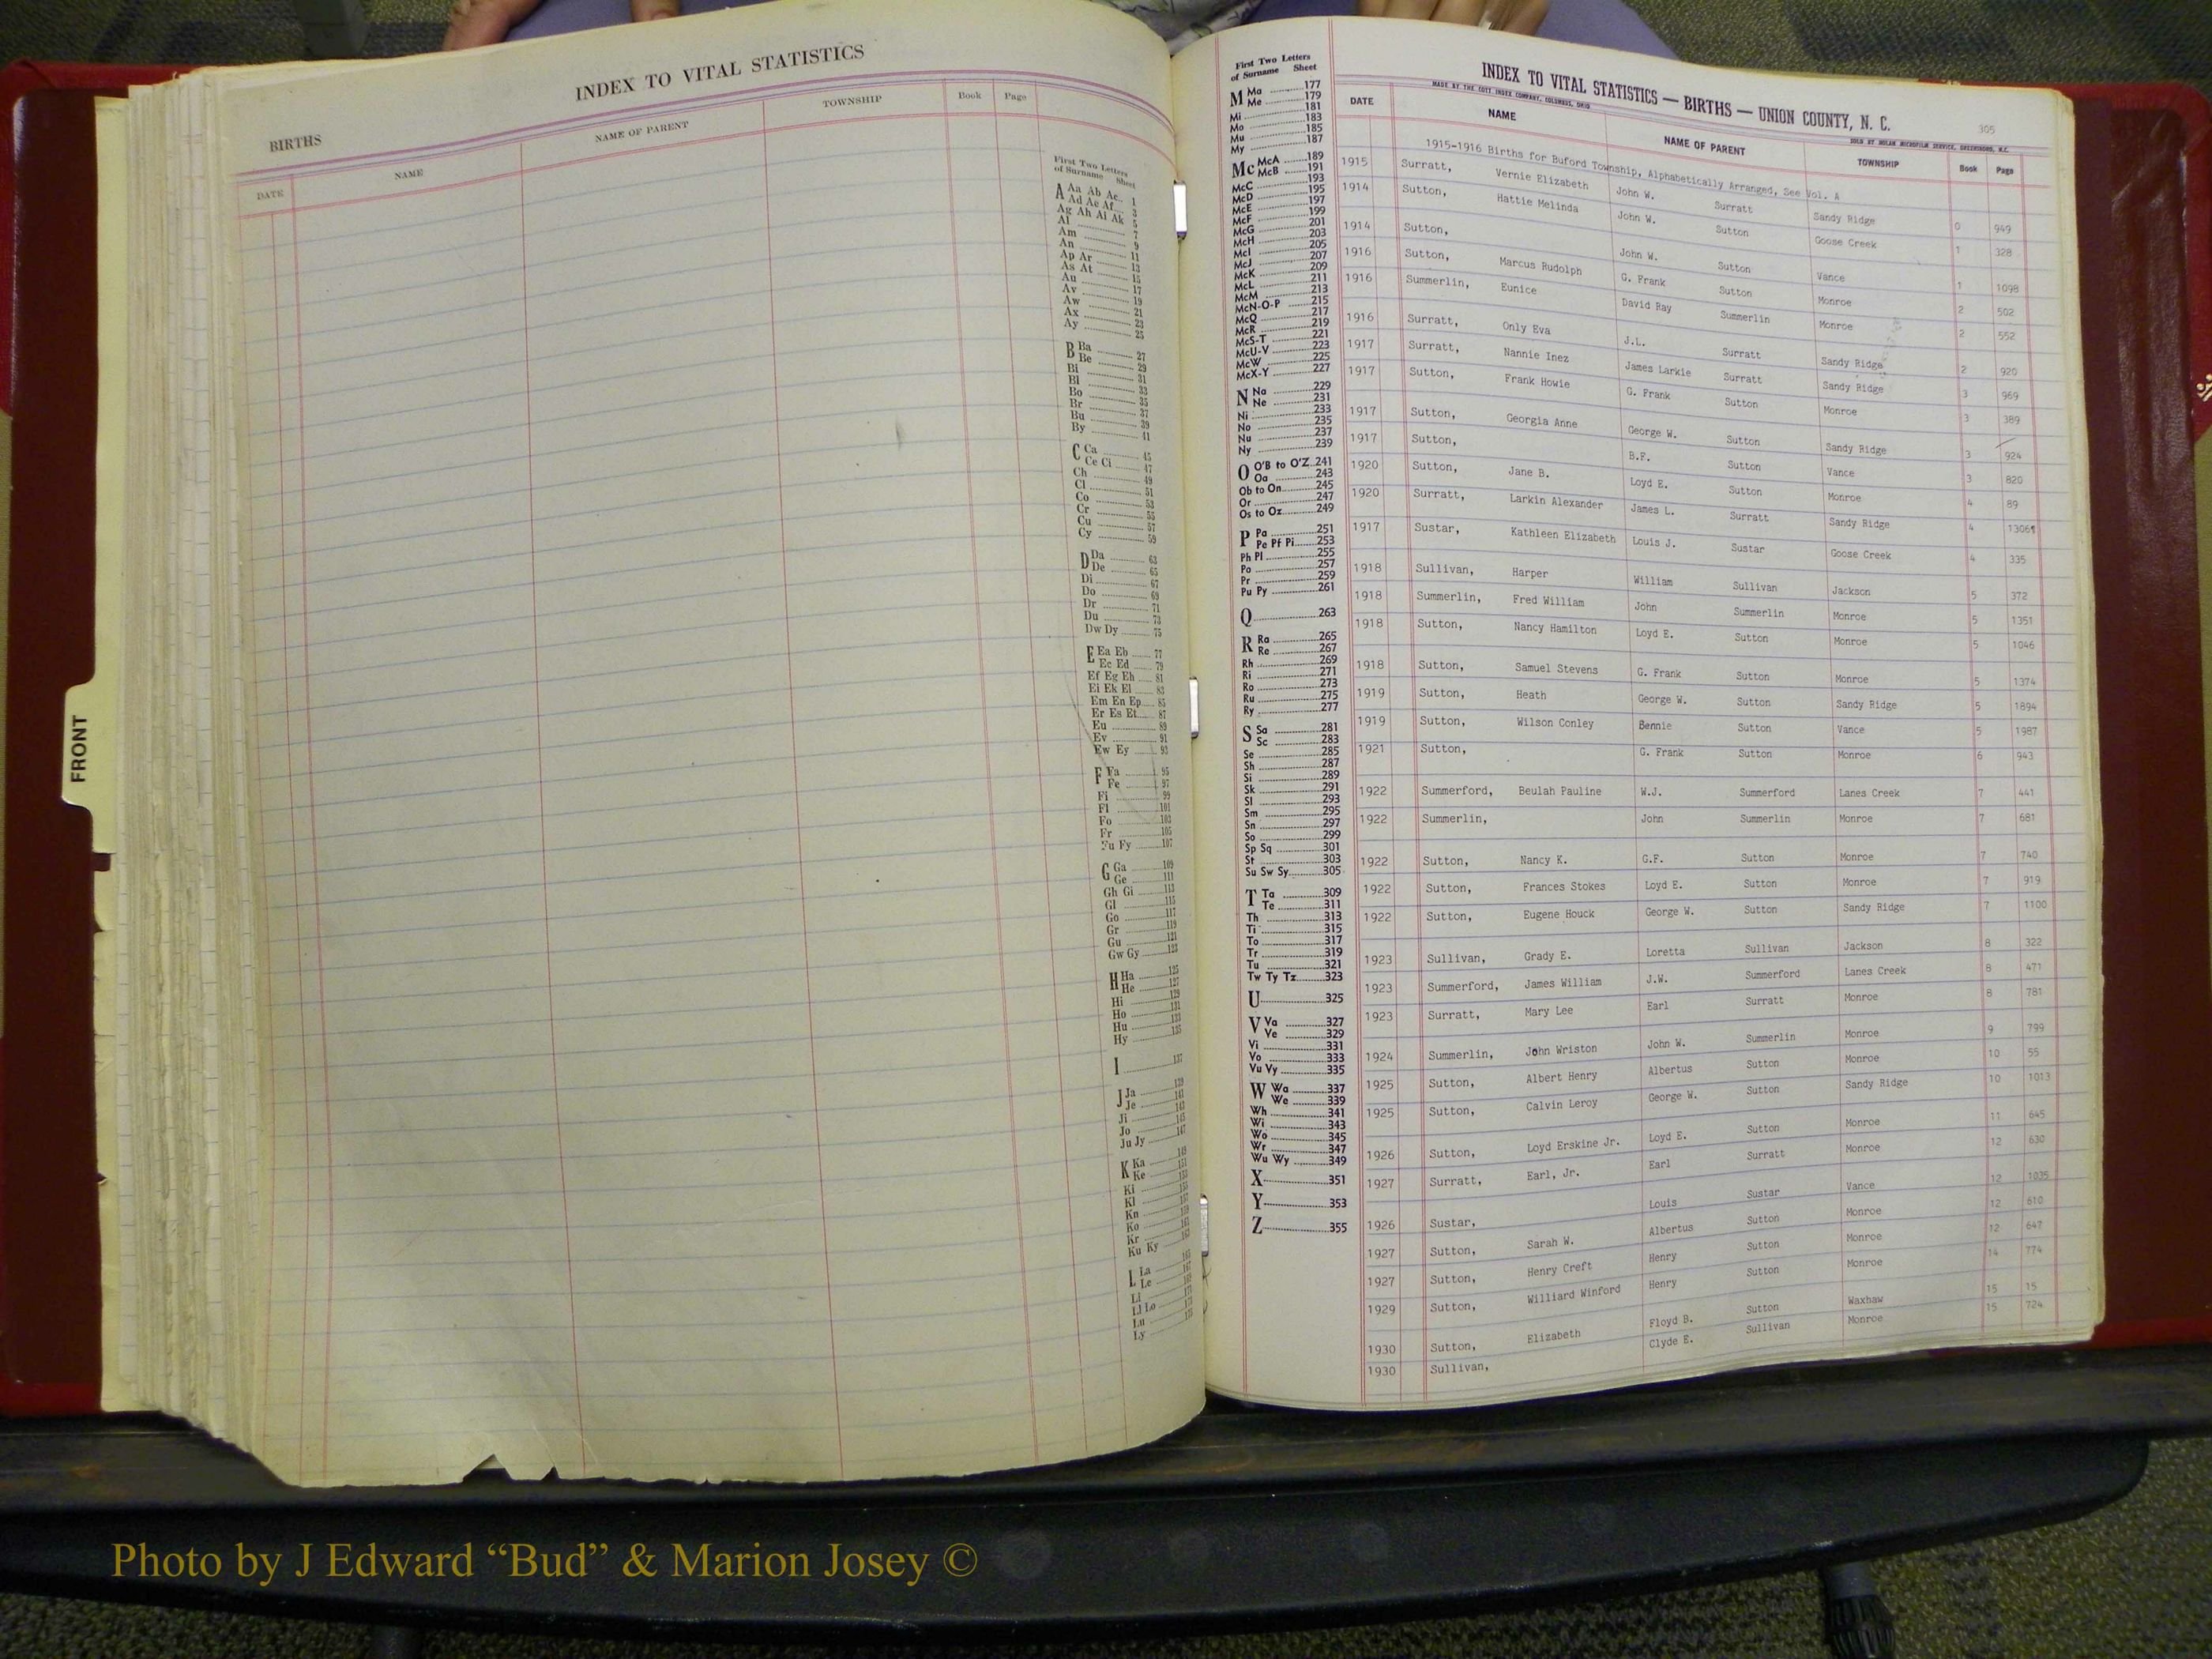 FRONT
INDEX TO VITAL STATISTICS
BIRTHS
DATE NAME NAME OF PARENT TOWNSHIP Book Page
First Two Letters
of Surname Sheet
A Aa Ab Ac 1
Ad Ae Af 3
Ag Ah Ai Ak 5
Al 7
Am 9
An 11
Ap Ar 13
As At 15
Au 17
Av 19
Aw 21
Ax 23
Ay 25
B Ba 27
Be 29
Bi 31
Bl 33
Bo 35
Br 37
Bu 39
By 41
C Ca 45
Ce Ci 47
Ch 49
Cl 51
Co 53
Cr 55
Cu 57
Cy 59
D Da 63
De 65
Di 67
Do 69
Dr 71
Du 73
Dw Dy 75
E Ea Eb 77
Ec Ed 79
Ef Eg Eh 81
Ei Ek El 83
Em En Ep 85
Er Es Et 87
Eu 89
Ev 91
Ew Ey 93
F Fa 95
Fe 97
Fi 99
Fl 101
Fo 103
Fr 105
Fu Fy 107
G Ga 109
Ge 111
Gh Gi 113
Gl 115
Go 117
Gr 119
Gu 121
Gw Gy 123
H Ha 125
He 127
Hi 129
Ho 131
Hu 133
Hy 135
I 137
J Ja 139
Je 141
Ji 143
Jo 145
Ju Jy 147
K Ka 149
Ke 151
Ki 153
Kl 155
Kn 157
Ko 159
Kr 161
Ku Ky 163
L La 165
Le 167
Li
Ll Lo
Lu
Ly
First Two Letters
of Surname Sheet
M Ma 177
Me 179
Mi 181
Mo 183
Mu 185
My 187
Mc McA 189
McB 191
McC 193
McD 195
McE 197
McF 199
McG 201
McH 203
McI 205
McJ 207
McK 209
McL 211
McM 213
McN-O-P 215
McQ 217
McR 219
McS-T 221
McU-V 223
McW 225
McX-Y 227
N Na 229
Ne 231
Ni 233
No 235
Nu 237
Ny 239
O O'B to O'Z 241
Oa 243
Ob to On 245
Or 247
Os to Oz 249
P Pa 251
Pe Pf Pi 253
Ph Pl 255
Po 257
Pr 259
Pu Py 261
Q 263
R Ra 265
Re 267
Rh 269
Ri 271
Ro 273
Ru 275
Ry 277
S Sa 281
Sc 283
Se 285
Sh 287
Si 289
Sk 291
Sl 293
Sm 295
Sn 297
So 299
Sp Sq 301
St 303
Su Sw Sy 305
T Ta 309
Te 311
Th 313
Ti 315
To 317
Tr 319
Tu 321
Tw Ty Tz 323
U 325
V Va 327
Ve 329
Vi 331
Vo 333
Vu Vy 335
W Wa 337
We 339
Wh 341
Wi 343
Wo 345
Wr 347
Wu Wy 349
X 351
Y 353
Z 355
INDEX TO VITAL STATISTICS — BIRTHS — UNION COUNTY, N. C. 305
MADE BY THE COTT INDEX COMPANY, COLUMBUS, OHIO SOLD BY NOLAN MICROFILM SERVICE, GREENSBORO, N.C.
DATE NAME NAME OF PARENT TOWNSHIP Book Page
1915-1916 Births for Buford Township, Alphabetically Arranged, See Vol. A
1915 Surratt, Vernie Elizabeth John W. Surratt Sandy Ridge 0 949
1914 Sutton, Hattie Melinda John W. Sutton Goose Creek 1 328
1914 Sutton, John W. Sutton Vance 1 1098
1916 Sutton, Marcus Rudolph G. Frank Sutton Monroe 2 502
1916 Summerlin, Eunice David Ray Summerlin Monroe 2 552
1916 Surratt, Only Eva J.L. Surratt Sandy Ridge 2 920
1917 Surratt, Nannie Inez James Larkie Surratt Sandy Ridge 3 969
1917 Sutton, Frank Howie G. Frank Sutton Monroe 3 389
1917 Sutton, Georgia Anne George W. Sutton Sandy Ridge 3 924
1917 Sutton, B.F. Sutton Vance 3 820
1920 Sutton, Jane B. Loyd E. Sutton Monroe 4 89
1920 Surratt, Larkin Alexander James L. Surratt Sandy Ridge 4 1306
1917 Sustar, Kathleen Elizabeth Louis J. Sustar Goose Creek 4 335
1918 Sullivan, Harper William Sullivan Jackson 5 372
1918 Summerlin, Fred William John Summerlin Monroe 5 1351
1918 Sutton, Nancy Hamilton Loyd E. Sutton Monroe 5 1046
1918 Sutton, Samuel Stevens G. Frank Sutton Monroe 5 1374
1919 Sutton, Heath George W. Sutton Sandy Ridge 5 1894
1919 Sutton, Wilson Conley Bennie Sutton Vance 5 1987
1921 Sutton, G. Frank Sutton Monroe 6 943
1922 Summerford, Beulah Pauline W.J. Summerford Lanes Creek 7 441
1922 Summerlin, John Summerlin Monroe 7 681
1922 Sutton, Nancy K. G.F. Sutton Monroe 7 740
1922 Sutton, Frances Stokes Loyd E. Sutton Monroe 7 919
1922 Sutton, Eugene Houck George W. Sutton Sandy Ridge 7 1100
1923 Sullivan, Grady E. Loretta Sullivan Jackson 8 322
1923 Summerford, James William J.W. Summerford Lanes Creek 8 471
1923 Surratt, Mary Lee Earl Surratt Monroe 8 781
1924 Summerlin, John Wriston John W. Summerlin Monroe 9 799
1925 Sutton, Albert Henry Albertus Sutton Monroe 10 55
1925 Sutton, Calvin Leroy George W. Sutton Sandy Ridge 10 1013
1926 Sutton, Loyd Erskine Jr. Loyd E. Sutton Monroe 11 645
1927 Surratt, Earl, Jr. Earl Surratt Monroe 12 630
1926 Sustar, Louis Sustar Vance 12 1035
1927 Sutton, Sarah W. Albertus Sutton Monroe 12 610
1927 Sutton, Henry Creft Henry Sutton Monroe 12 647
1929 Sutton, Williard Winford Henry Sutton Monroe 14 774
1930 Sutton, Elizabeth Floyd B. Sutton Waxhaw 15 15
1930 Sullivan, Clyde E. Sullivan Monroe 15 724
Photo by J Edward “Bud” & Marion Josey ©